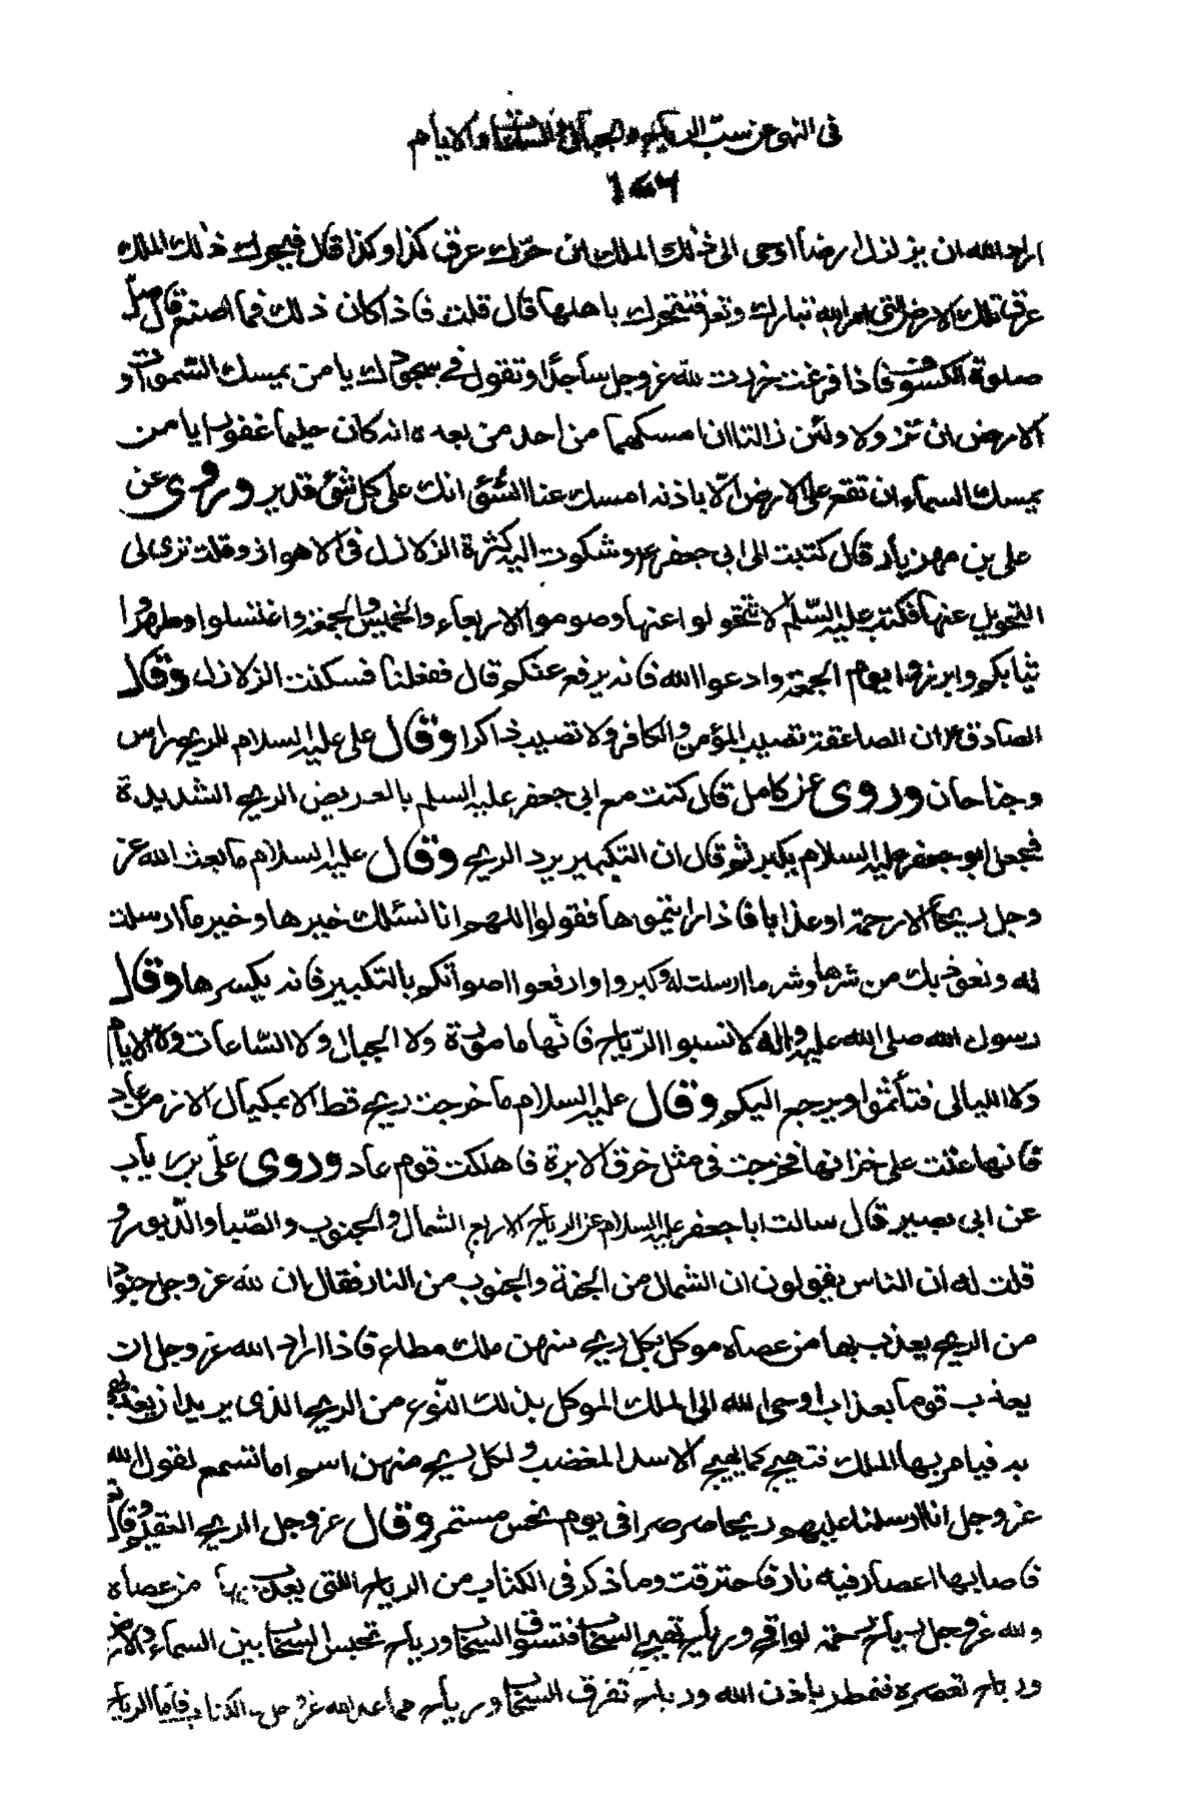 فى النهى عن سب الرياح والجبال والساعات والايام
اراد الله ان يزلزل ارضاً اوحى الى ذلك الملك ان حرك عرق كذا وكذا قال فيحرك ذلك الملك
عرق تلك الارض التى امر الله تبارك وتعالى فتتحرك باهلها قال قلت فاذا كان ذلك فما اصنع قال صل
صلوة الكسوف فاذا فرغت خررت لله عز وجل ساجدًا وتقول في سجودك يا من يمسك السّموات و
الارض ان تزولا ولئن زالتا ان امسكهما من احد من بعده انه كان حليما غفورا يا من
يمسك السماء ان تقع على الارض الّا باذنه امسك عنا السّوء انك على كل شئ قدير وروى عن
على بن مهزيار قال كتبت الى ابى جعفر ع وشكوت اليه كثرة الزلازل فى الاهواز وقلت ترى لى
التحويل عنها فكتب عليه السّلم لا تتحولوا عنها وصوموا الاربعاء والخميس والجمعة واغتسلوا وطهروا
ثيابكم وابرزوا يوم الجمعة وادعوا الله فانه يرفع عنكم قال ففعلنا فسكنت الزلازل وقال
الصادق ع ان الصاعقة تصيب المؤمن والكافر ولا تصيب ذاكرا وقال على عليه السلام للريح راس
وجناحان وروى عن كامل قال كنت مع ابى جعفر عليه السلم بالعريض الريح الشديدة
فجعل ابو جعفر عليه السلام يكبر ثم قال ان التكبير يرد الريح وقال عليه السلام ما بعث الله عز
وجل ريحاً الا رحمة او عذابا فاذا رايتموها فقولوا اللهم انا نسئلك خيرها وخير ما ارسلت
له ونعوذ بك من شرها وشر ما ارسلت له وكبروا وارفعوا اصواتكم بالتكبير فانه يكسرها وقال
رسول الله صلى الله عليه واله لا تسبوا الرّياح فانّها مامورة ولا الجبال ولا السّاعات ولا الايام
ولا الليالى فتأثموا ويرجع اليكم وقال عليه السلام ما خرجت ريح قط الا بمكيال الا زمن عاد
فانها عتت على خزانها فخرجت فى مثل خرق الابرة فاهلكت قوم عاد وروى علّى بن رياب
عن ابى بصير قال سالت ابا جعفر عليه السلام عن الرياح الاربع الشمال والجنوب والصّبا والدّبور و
قلت له ان الناس يقولون ان الشمال من الجنة والجنوب من النار فقال ان لله عز وجل جنودا
من الريح يعذب بها من عصاه موكل بكل ريح منهن ملك مطاع فاذا اراد الله عز وجل ان
يعذب قوما بعذاب اوحى الله الى الملك الموكل بذلك النّوع من الريح الذى يريد ان يعذبهم
به فيامر بها الملك فتهيج كما يهيج الاسد المغضب ولكل ريح منهن اسم اما تسمع لقول الله
عز وجل انا ارسلنا عليهم ريحا صرصرا فى يوم نحس مستمر وقال عز وجل الريح العقيم وقال
فاصابها اعصار فيه نار فاحترقت وما ذكر فى الكتاب من الرياح التى يعذب بها من عصاه
ولله عز وجل رياح رحمة لواقح ورياح تهيج السحاب فتسوق السحاب ورياح تحبس السحاب بين السماء والارض
ورياح تعصره فتمطر باذن الله ورياح تفرق السحاب ورياح مما عد الله عز وجل فى الكتاب فاما الرياح